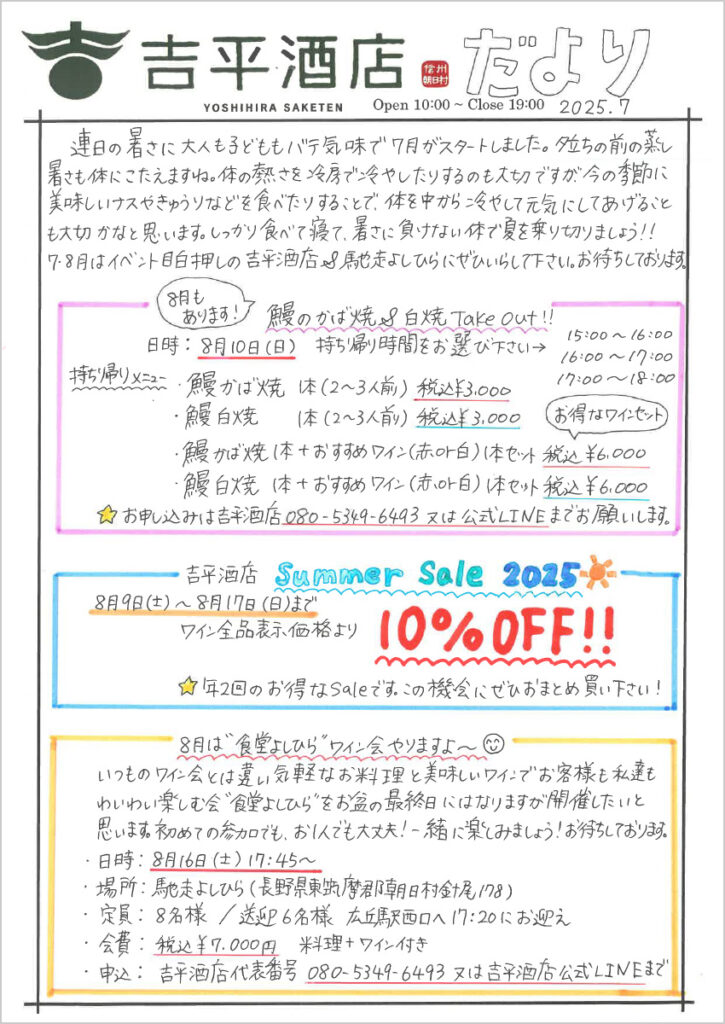 吉
吉平酒店 信州朝日村 だより
YOSHIHIRA SAKETEN Open 10:00 ~ Close 19:00 2025.7
連日の暑さに大人も子どももバテ気味で7月がスタートしました。夕立ちの前の蒸し
暑さも体にこたえますね。体の熱さを冷房で冷やしたりするのも大切ですが今の季節に
美味しいナスやきゅうりなどを食べたりすることで、体を中から冷やして元気にしてあげること
も大切かなと思います。しっかり食べて寝て、暑さに負けない体で夏を乗り切りましょう!!
7・8月はイベント目白押しの吉平酒店&馳走よしひらにぜひいらして下さい。お待ちしております。
8月も
あります!
鰻のかば焼&白焼 Take Out!!
日時: 8月10日(日) 持ち帰り時間をお選び下さい→
15:00~16:00
16:00~17:00
17:00~18:00
持ち帰りメニュー
・鰻かば焼 1本(2~3人前) 税込¥3,000
・鰻白焼 1本(2~3人前) 税込¥3,000
お得なワインセット
・鰻かば焼 1本+おすすめワイン(赤or白)1本セット 税込¥6,000
・鰻白焼 1本+おすすめワイン(赤or白)1本セット 税込¥6,000
☆お申し込みは吉平酒店 080-5349-6493 又は公式LINEまでお願いします。
吉平酒店 Summer Sale 2025
8月9日(土)~8月17日(日)まで
ワイン全品表示価格より 10%OFF!!
☆年2回のお得なSaleです。この機会にぜひおまとめ買い下さい!
8月は"食堂よしひら"ワイン会やりますよ~
いつものワイン会とは違い気軽なお料理と美味しいワインでお客様も私達も
わいわい楽しむ会"食堂よしひら"をお盆の最終日にはなりますが開催したいと
思います。初めての参加でも、お1人でも大丈夫!一緒に楽しみましょう!お待ちしております。
・日時: 8月16日(土) 17:45~
・場所: 馳走よしひら(長野県東筑摩郡朝日村針尾178)
・定員: 8名様 / 送迎6名様 広丘駅西口へ17:20にお迎え
・会費: 税込¥7,000円 料理+ワイン付き
・申込: 吉平酒店代表番号 080-5349-6493 又は吉平酒店公式LINEまで